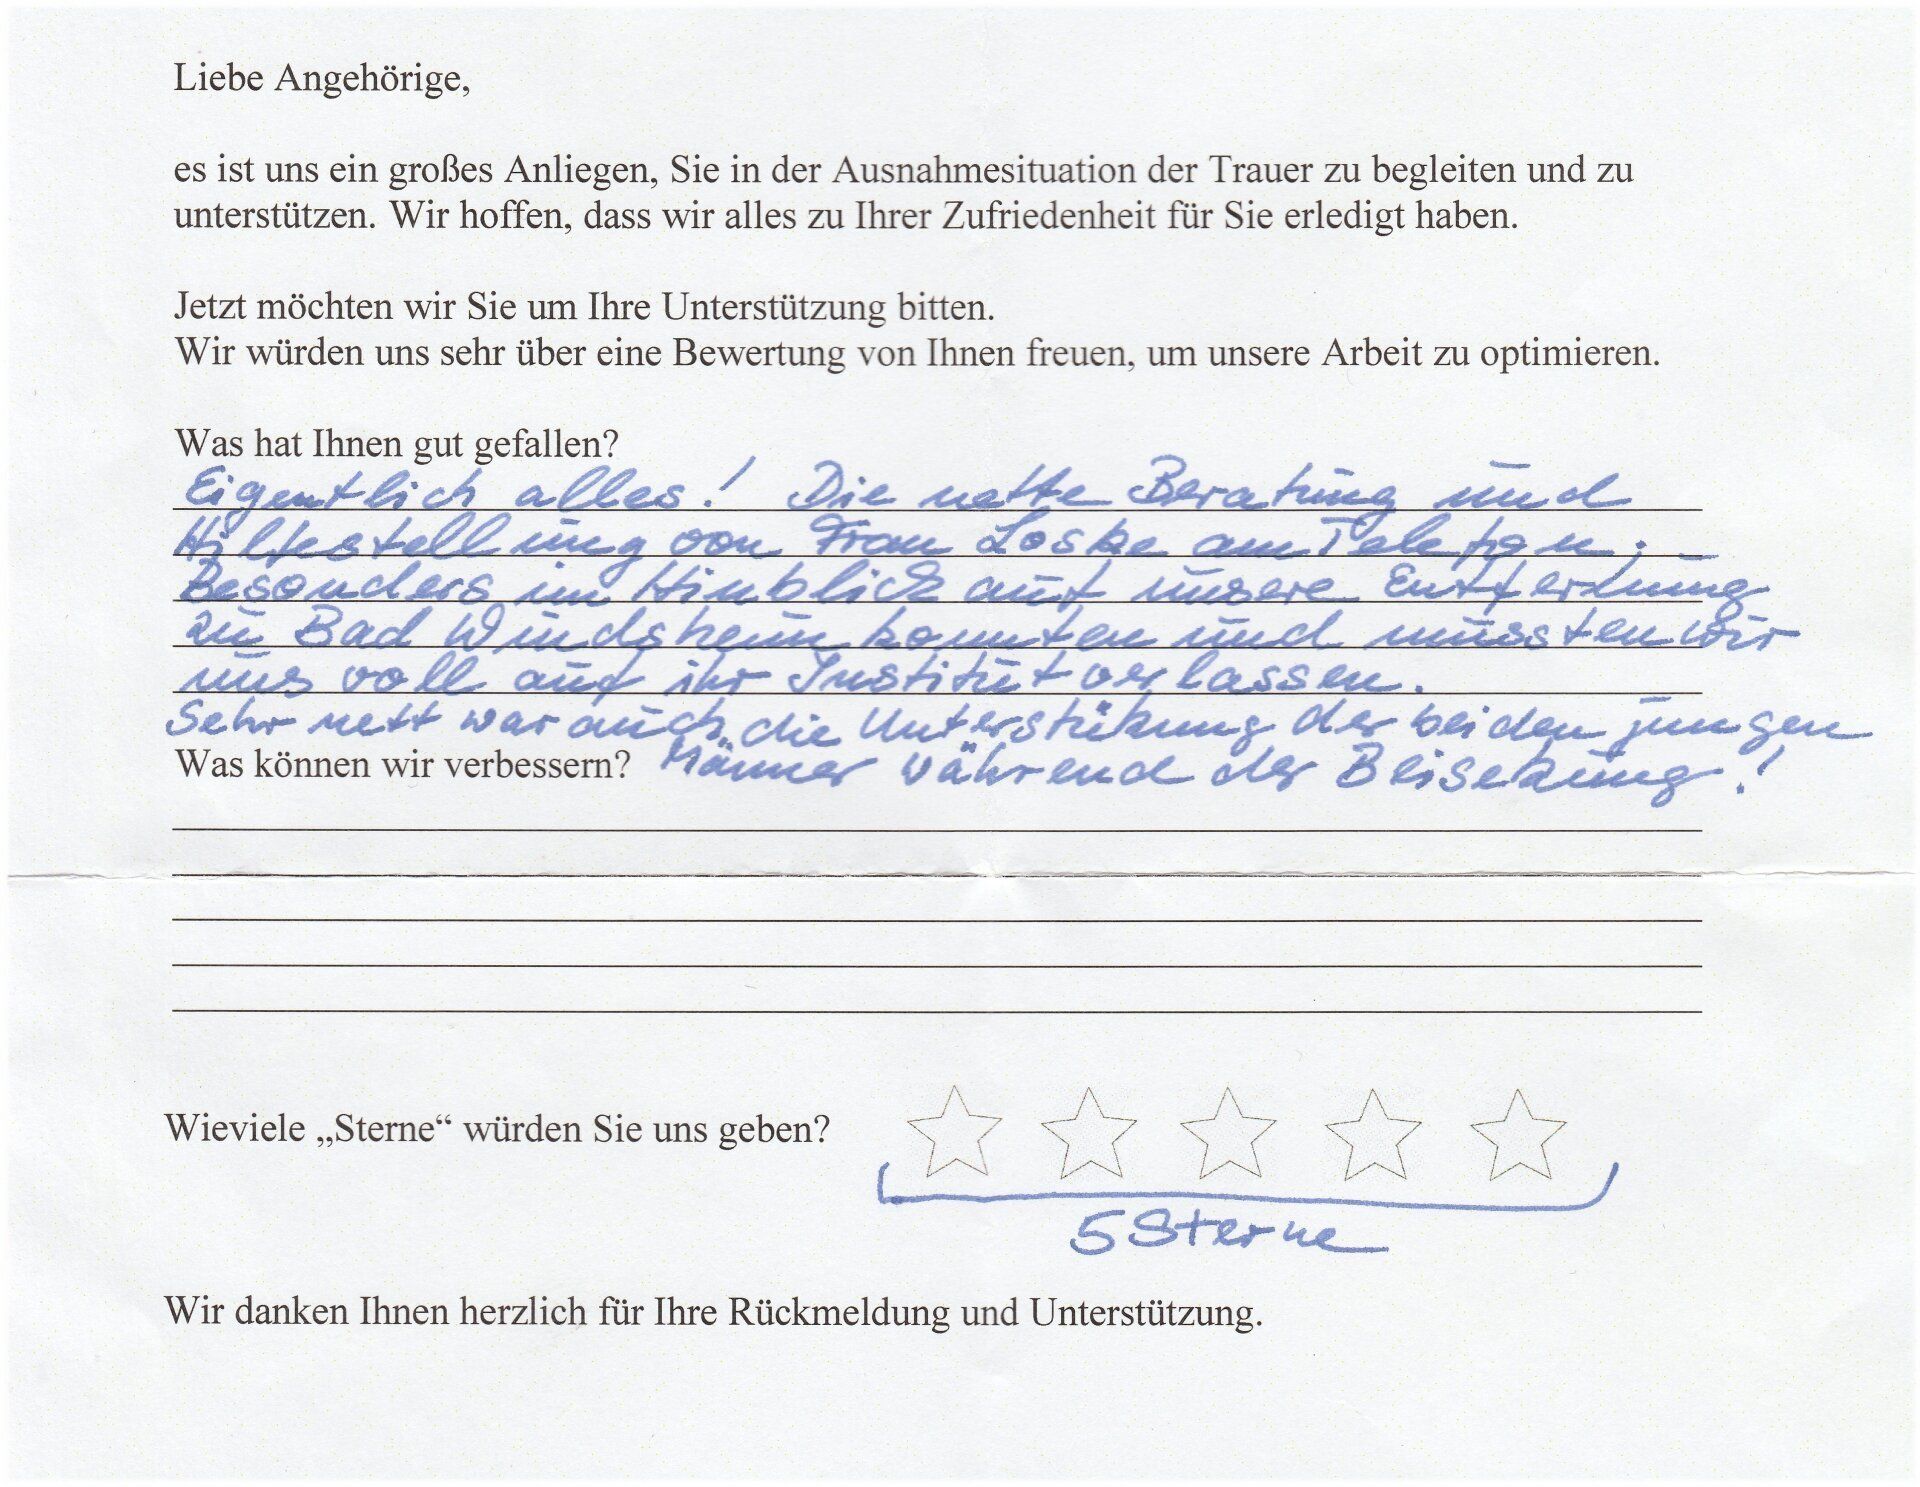 Liebe Angehörige,
es ist uns ein großes Anliegen, Sie in der Ausnahmesituation der Trauer zu begleiten und zu
unterstützen. Wir hoffen, dass wir alles zu Ihrer Zufriedenheit für Sie erledigt haben.
Jetzt möchten wir Sie um Ihre Unterstützung bitten.
Wir würden uns sehr über eine Bewertung von Ihnen freuen, um unsere Arbeit zu optimieren.
Was hat Ihnen gut gefallen?
Eigentlich alles! Die nette Beratung und
Hilfestellung von Frau Loske am Telefon. –
Besonders im Hinblick auf unsere Entfernung
zu Bad Windsheim konnten und mussten wir
uns voll auf ihr Institut verlassen.
Sehr nett war auch die Unterstützung der beiden jungen
Was können wir verbessern? Männer während der Beisetzung!
Wieviele „Sterne“ würden Sie uns geben?
5 Sterne
Wir danken Ihnen herzlich für Ihre Rückmeldung und Unterstützung.